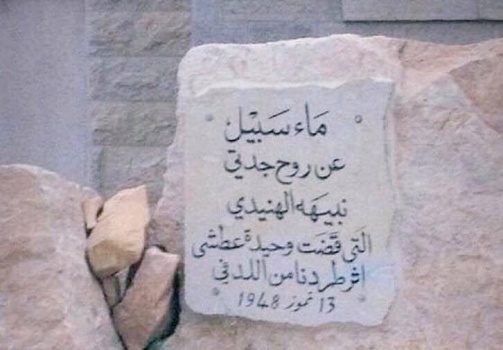 مَاء سَبِيْل
عن روح جدتي
نبيهَه الهنيدي
التي قضَت وحيدة عطشى
اثر طردنا من اللد في
13 تموز 1948